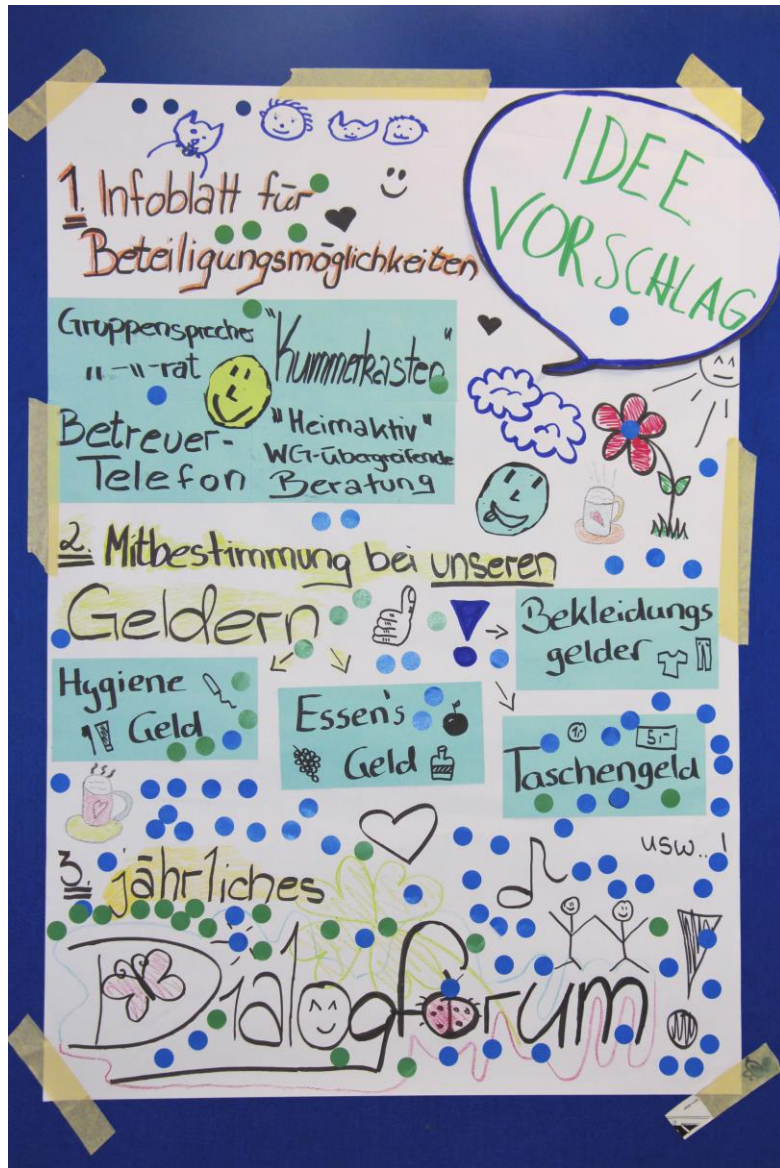 IDEE
VORSCHLAG
1. Infoblatt für
Beteiligungsmöglichkeiten
Gruppensprecher
"-"-rat
"Kummerkasten"
Betreuer-
Telefon
"Heimaktiv"
WG-Übergreifende
Beratung
2. Mitbestimmung bei unseren
Geldern
Bekleidungs
gelder
Hygiene
Geld
Essen's
Geld
5.-
Taschengeld
usw..!
3. jährliches
Dialogforum